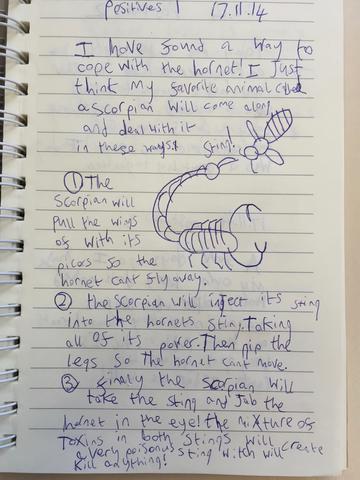 positives 1 17.11.14
I have found a way to
cope with the hornet! I Just
think my favorite animal
a scorpian will come along
and deal with it
in these ways!
Sting!
① The
Scorpian will
pull the wings
of with its
picors so the
hornet cant fly away.
② the scorpian will inject its sting
into the hornets sting. Taking
all of its power. Then nip the
legs so the hornet cant move.
③ finaly the scorpian will
take the sting and Jab the
hornet in the eye! the mixture of
Toxins in both stings will create
a very poisonus sting witch will
kill anything!